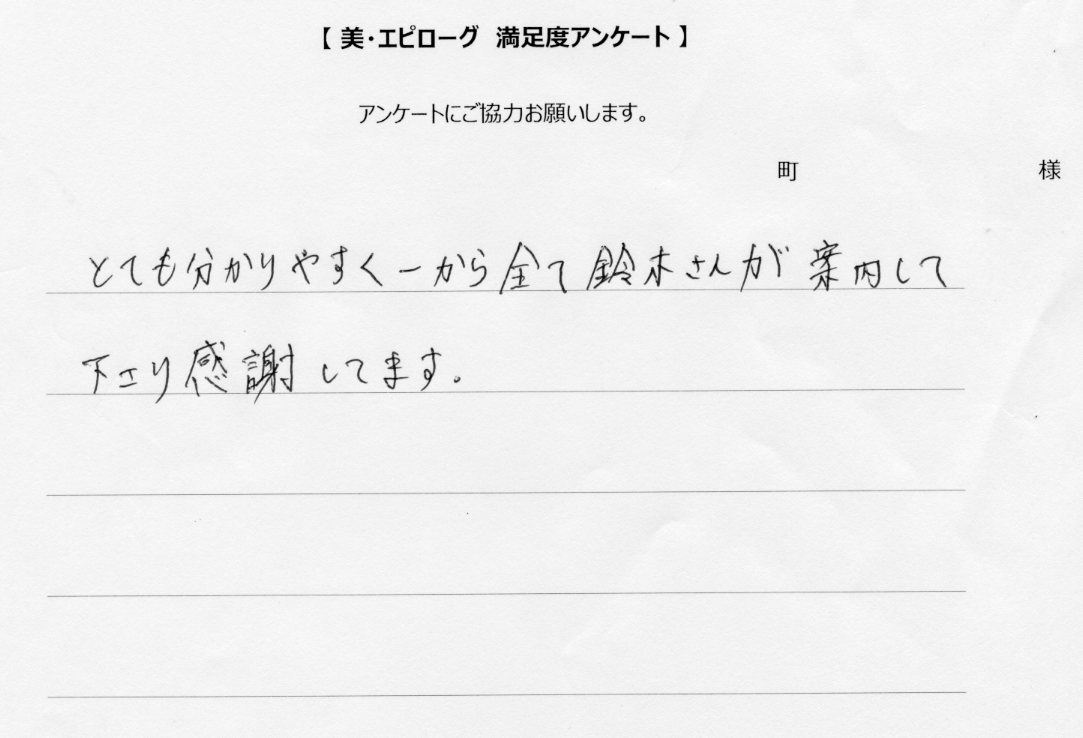 【 美・エピローグ 満足度アンケート 】
アンケートにご協力お願いします。
町 様
とても分かりやすく一から全て鈴木さんが案内して
下さり感謝してます。